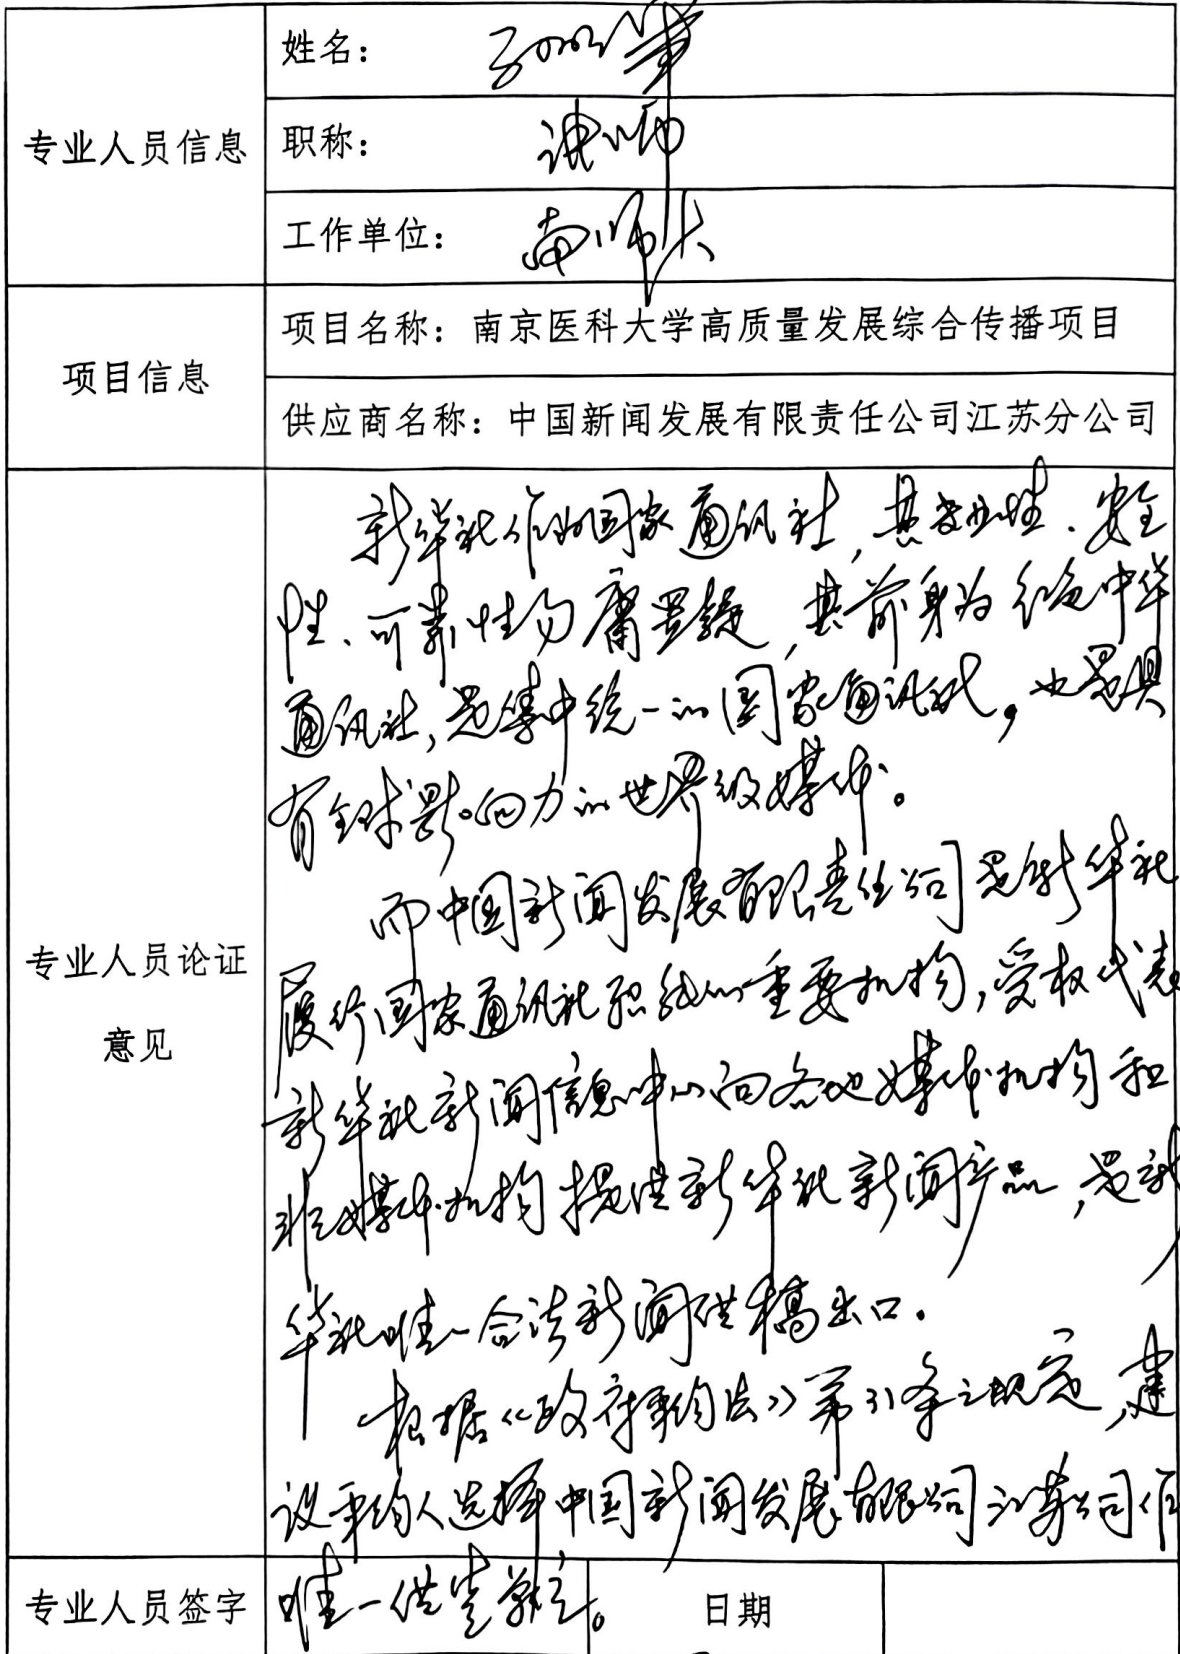 姓名：
专业人员信息
职称： 讲师
工作单位： 南师大
项目信息
项目名称：南京医科大学高质量发展综合传播项目
供应商名称：中国新闻发展有限责任公司江苏分公司
专业人员论证
意见
新华社作为国家通讯社，其专业性、安全
性、可靠性勿庸置疑，其前身为红色中华
通讯社，是集中统一的国家通讯社，也是具
有全球影响力的世界级媒体。
而中国新闻发展有限责任公司是新华社
履行国家通讯社职能的重要机构，受权代表
新华社新闻信息中心向各地媒体机构和
非媒体机构提供新华社新闻产品，是新
华社唯一合法新闻供稿出口。
根据《政府采购法》第31条之规定，建
议采购人选择中国新闻发展有限公司江苏公司作
唯一供
专业人员签字
日期